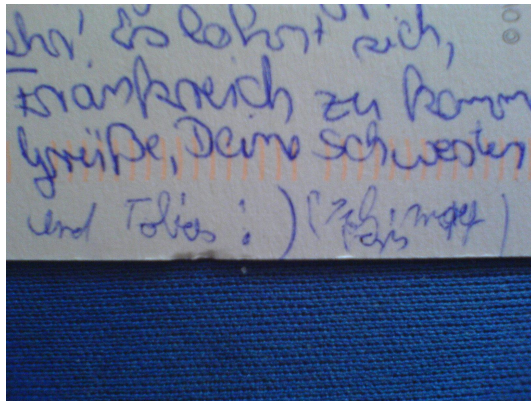 Es lohnt sich,
Frankreich zu komm
Grüße, Deine Schwester
und Tobias :) (